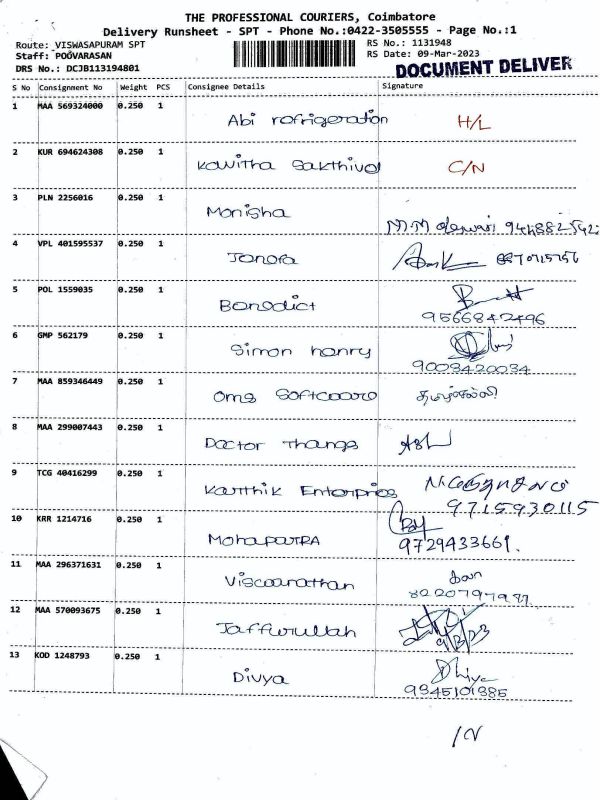 THE PROFESSIONAL COURIERS, Coimbatore
Delivery Runsheet - SPT - Phone No.:0422-3505555 - Page No.:1
Route: VISWASAPURAM SPT RS No.: 1131948
Staff: POOVARASAN RS Date: 09-Mar-2023
DRS No.: DCJB113194801 DOCUMENT DELIVER
S No Consignment No Weight PCS Consignee Details Signature
1 MAA 569324000 0.250 1
Abi refrigeration H/L
2 KUR 694624308 0.250 1
Kavitha Sakthivel C/N
3 PLN 2256016 0.250 1
Monisha
4 VPL 401595537 0.250 1
5 POL 1559035 0.250 1
Benedict
9566842496
6 GMP 562179 0.250 1
Simon henry
9003420034
7 MAA 859346449 0.250 1
Oms Software
8 MAA 299007443 0.250 1
Doctor Thangs
9 TCG 40416299 0.250 1
Karthik Enterprises
9715930115
10 KRR 1214716 0.250 1
Mohapatra 9729433661.
11 MAA 296371631 0.250 1
Viswanathan
12 MAA 570093675 0.250 1
Jaffurullah 9/3/23
13 KOD 1248793 0.250 1
Divya Dhivya
9345101385